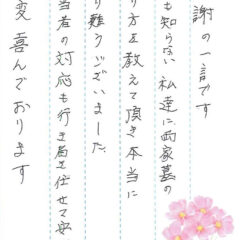 謝の一言です
も知らない私達に両家墓の
り方を教えて頂き本当に
り難うございました。
当者の対応も行き届き任せて安
変喜んでおります